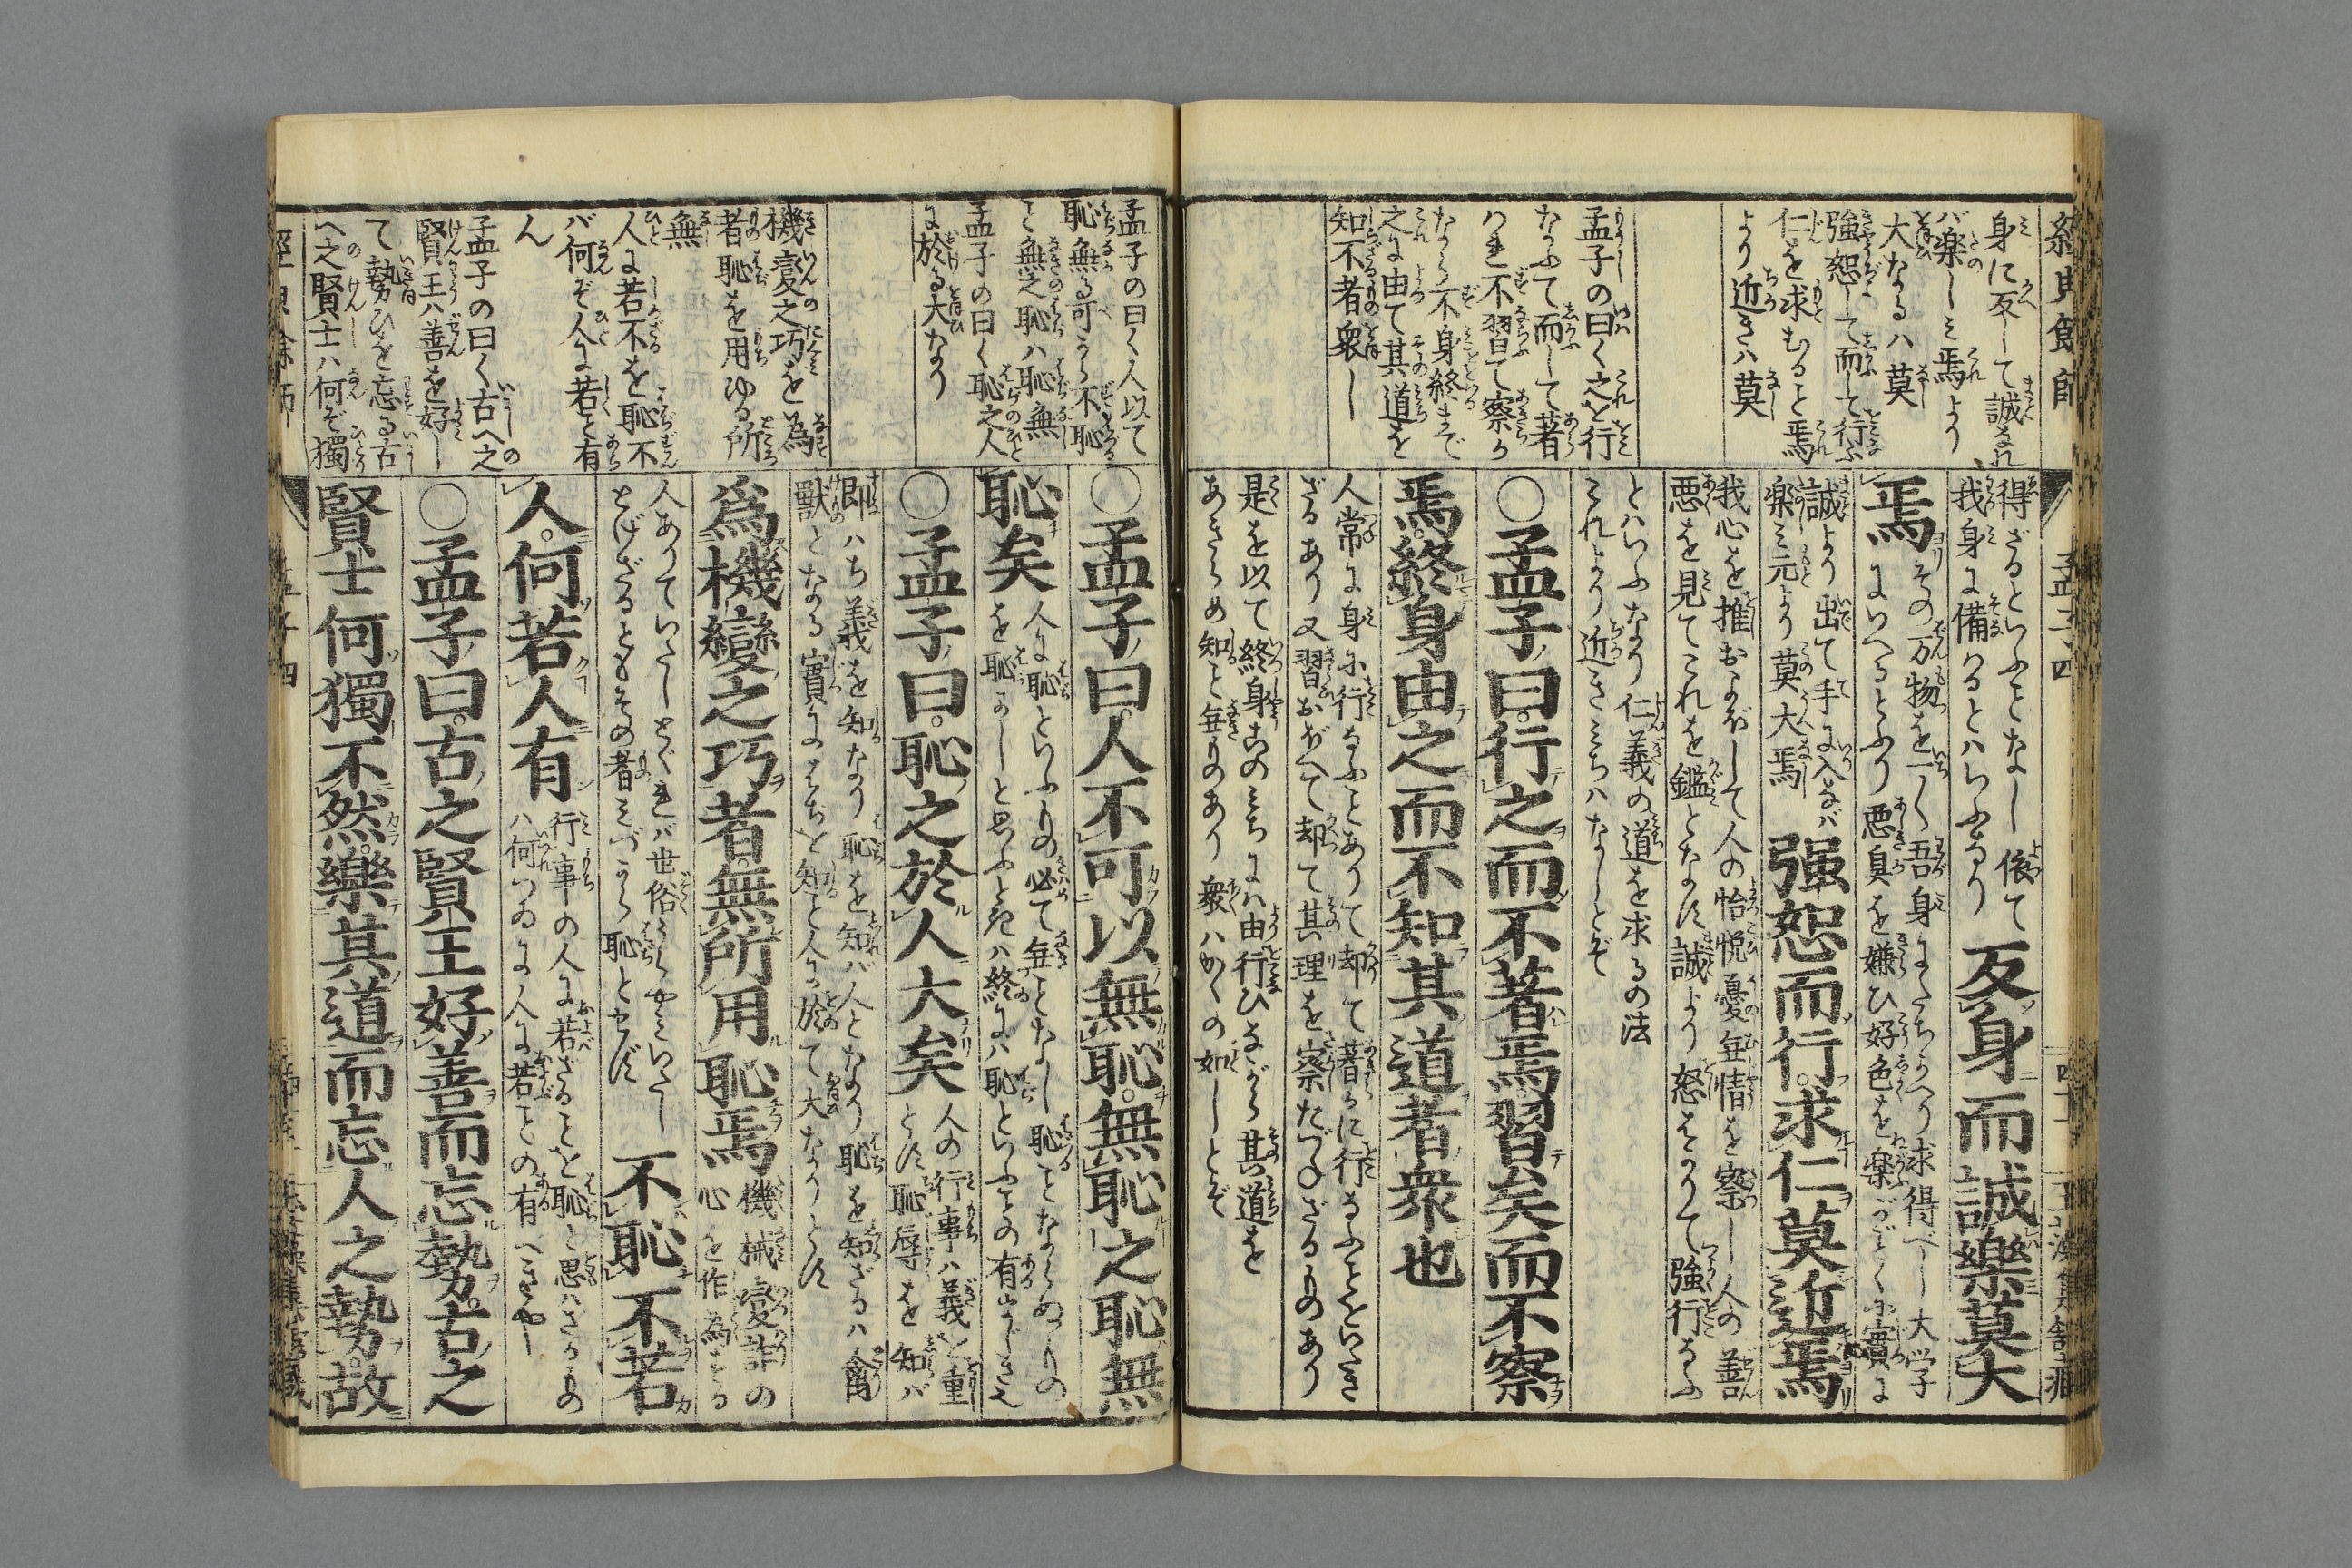 經典餘師
身に反して誠なれ
バ楽しミ焉より
大なるハ莫
強恕して而して行ふ
仁を求むること焉
より近きハ莫
孟子の曰く之を行
なふて而して著
ハれず習て察か
ならず不身終まで
之に由て其道を
知不者衆し
孟子四
得ざるといふことなし依て
我身に備ハるとハいふなり
反身而誠樂莫大
焉
その万物を一〻吾身にたちかへり求得べし大学
にいへるとふり悪臭を嫌ひ好色を楽ごとくに實に
誠より出て手に入なバ
楽ミ元より莫大焉
强恕而行求仁莫近焉
我心を推およぼして人の怡悦憂無情を察し人の善
悪を見てこれを鑑となす誠より恕をかりて強行なふ
といふなり仁義の道を求るの法
これより近きミちハなしとぞ
○孟子曰行之而不著焉習矣而不察
焉終身由之而不知其道者衆也
人常に身に行なふことありて却て著らかに行なふことをいき
ざるあり又習おぼへて却て其理を察たゞさざるものあり
是を以て終身このミちにハ由行ひながら其道を
あきらめ知と無ものあり衆ハかくの如しとぞ
孟子の曰く人以て
恥無る可から不恥
こと無之恥ハ恥無
孟子の曰く恥之人
に於る大なり
機變之巧を為
者恥を用ゆる所
無
人に若不を恥不
バ何ぞ人に若と有
ん
孟子の曰く古へ之
賢王ハ善を好し
て勢ひを忘る古
へ之賢士ハ何ぞ獨
○孟子曰人不可以無恥無恥之恥無
恥矣
人に恥といふもの必て無ことなし恥ことなからめもの
を恥かしと思ふときハ終にハ恥といふことの有まじきぞ
○孟子曰恥之於人大矣
人の行事ハ義を重
とす恥辱を知バ
即ハち義を知なり恥を知バ人となり恥を知ざるハ禽
獣となる實にはぢを知と人に於て大なりとす
爲機變之巧者無所用恥焉
機械變詐の
心を作為する
人ありていたしとぐれバ世俗にくやミいたし
とげざるともその者ミづから恥とせず
不恥不若
人何若人有
行事の人に若ざることを恥と思ハざるもの
ハ何つゐに人に若ことの有べきや
○孟子曰古之賢王好善而忘勢古之
賢士何獨不然樂其道而忘人之勢故